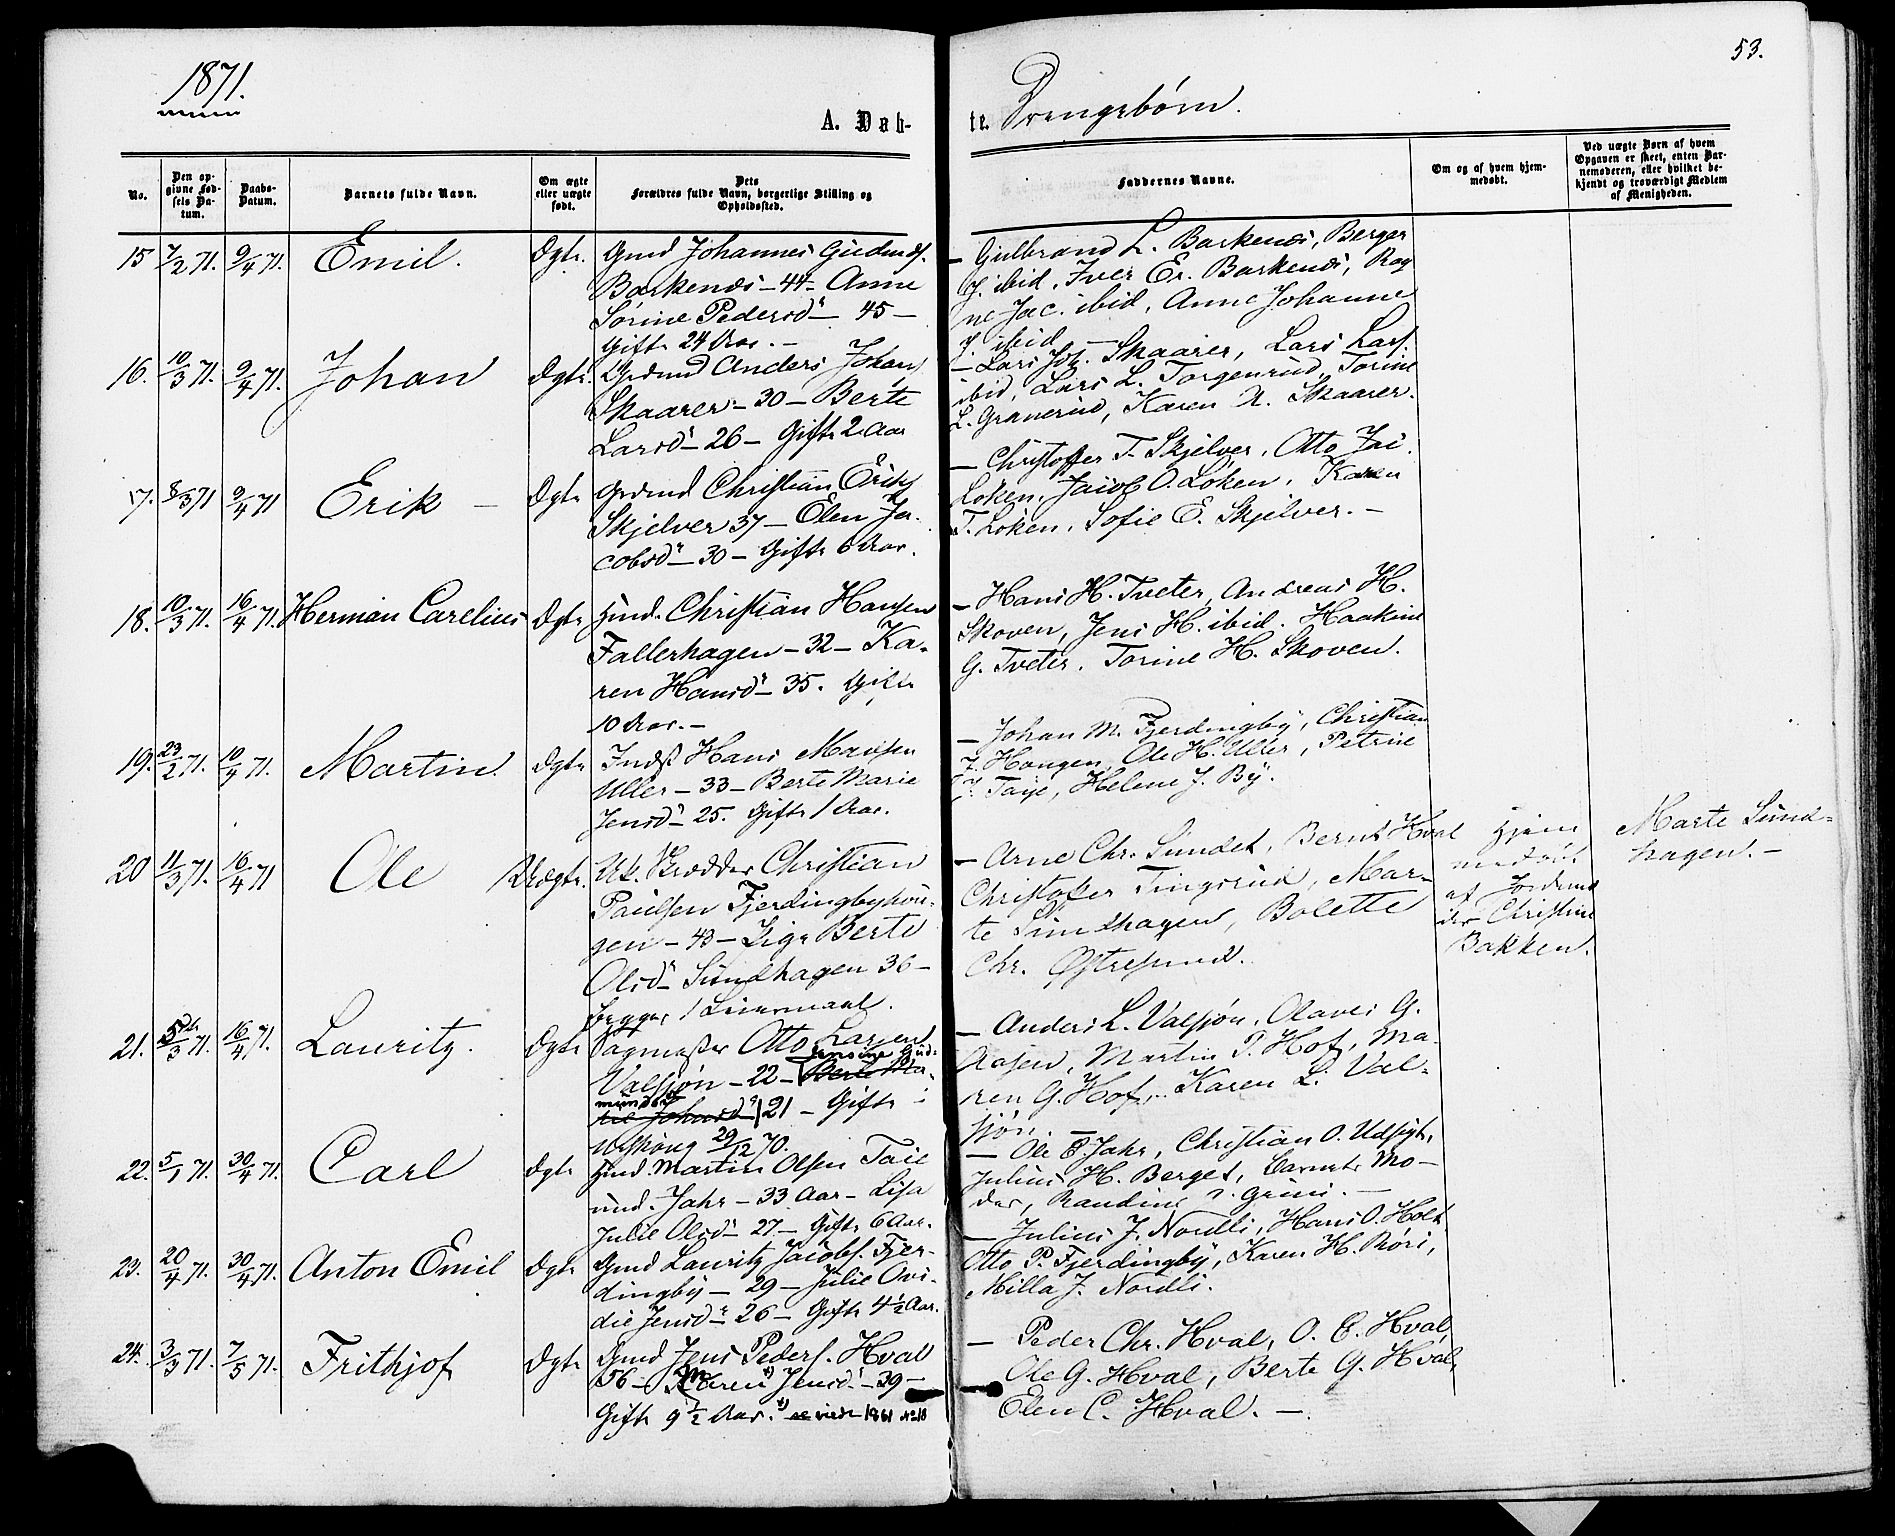 1871.
53.
A. Døb-
te. Drengebørn.
No.
Den op-
givne Fød-
sels Da-
tum.
Daabs-
Datum.
Barnets fulde Navn.
Om ægte
eller uægte
født.
Dets
Forældres fulde Navn, borgerlige Stilling og
Opholdssted.
Faddernes Navne.
Om og af hvem hjem-
medøbt.
Ved uægte Børn af hvem
Opgaven er skeet, enten Bar-
nemoderen, eller hvilket be-
kjendt og troværdigt Medlem
af Menigheden.
15 7/2 71. 9/4 71. Emil. Ægte. Gmd Johannes Gudmds.
Barkenæs - 44 - Anne
Sørine Pedersd - 45 -
Gifte 24 Aar. -
- Gulbrand L. Barkenæs, Berger
J. ibid, Iver Er. Barkenæs, Rag
ne Jac. ibid, Anne Johanne
J. ibid -
16. 10/3 71. 9/4 71. Johan Ægte. Grdmd Anders Johans
Skaarer - 30 - Berte
Larsd - 26 - Gifte 2 Aar
- Lars Joh. Skaarer, Lars Lars.
ibid, Lars L. Torgenrud, Torine
L. Granerud, Karen A. Skaarer.
17. 8/3 71 9/4 71 Erik - Ægte Grdmd Christian Eriks
Skjelver 37 - Elen Ja-
cobsd - 30 - Gifte 6 Aar.
- Christoffer T. Skjelver, Otto Jac.
Løken, Jacob O. Løken, Karen
T. Løken, Sofie E. Skjelver. -
18. 10/3 71. 16/4 71. Herman Carelius Ægte Hmd. Christian Hansen
Fallerhagen - 32 - Ka-
ren Hansd - 35. Gifte
10 Aar. -
- Hans H. Tveter, Andreas H.
Skoven, Jens H. ibid. Haakine
G. Tveter, Torine H. Skoven.
19. 23/2 71. 10/4 71. Martin. Ægte Indst Hans
Uller - 33 - Berte Marie
Jensd - 25. Gifte 1 Aar.
- Johan M. Fjerdingby, Christian
J. Haugen, Ole H. Uller, Petrine
J. Taje, Helene J. By.
20 11/3 71. 16/4 71 Ole Uægte. Uk. Skrædder Christian
Paulsen Fjerdingbyhau-
gen - 43 - Pige Berte
Olsd Sundhagen 36 -
begges 1 Leiermaal.
- Arne Chr. Sundet, Bernt Hval
Christofer Tingsrud, Mar-
te Sundhagen, Bolette
Chr. Østresund.
Hjem
medøbt
af Jordmo
der Christine
Bakken.
Marte Sund-
hagen. -
21. 5/3 71. 16/4 71. Lauritz. Ægte Sagmester Otto Larsen
Valsjøn - 22 - Jensine Gud-
mundsd 21 - Gifte i
Urskoug 29/12 70.
- Anders L. Valsjøn, Olaves G.
Aasen, Martin P. Hof, Ma-
ren G. Hof, Karen L. Val-
sjøn. -
22. 5/1 71. 30/4 71. Carl Ægte Hmd. Martin Olsen Taie
und. Jahr - 33 Aar - Lisa
Julie Olsd - 27 - Gifte 6 Aar.
- Ole E. Jahr, Christian O. Udsigt,
Julius H. Berget, Barnets Mo-
der, Randine Grini. -
23. 20/4 71. 30/4 71. Anton Emil Ægte Gmd Lauritz Jacobs. Fjer-
dingby - 29 - Julie Ovi-
die Jensd - 26 - Gifte 4½ Aar.
- Julius J. Nordli, Hans O. Holt
Otto P. Fjerdingby, Karen H. Røri,
Milla J. Nordli.
24. 3/3 71. 7/5 71. Frithjof Ægte Gmd Jens Peders. Hval
56 - Maren Jensd - 39 -
Gifte 9½ Aar. x) se viede 1861 No 18
- Peder Chr. Hval, O. E. Hval,
Ole G. Hval, Berte G. Hval,
Elen C. Hval. -